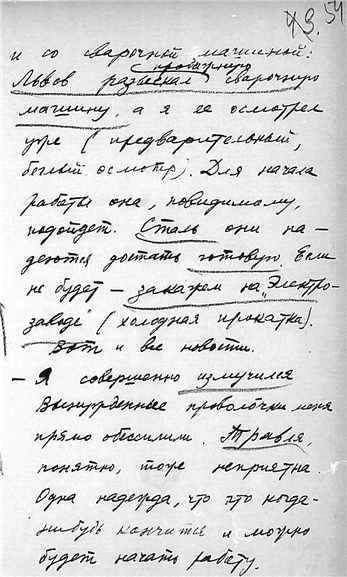 54
и со сварочной машиной:
Львов разыскал сварочную
машину, а я ее осмотрел
уже (предварительный,
беглый осмотр). Для начала
работы она, повидимому,
подойдет. Сталь они на-
деются достать готовую. Если
не будет – закажем на „Электро-
заводе" (холодная прокатка).
Вот и все новости.
– Я совершенно измучился
Вынужденные проволочки меня
прямо обессилили. Травля,
понятно, тоже неприятна.
Одна надежда, что это когда-
нибудь кончится и можно
будет начать работу.